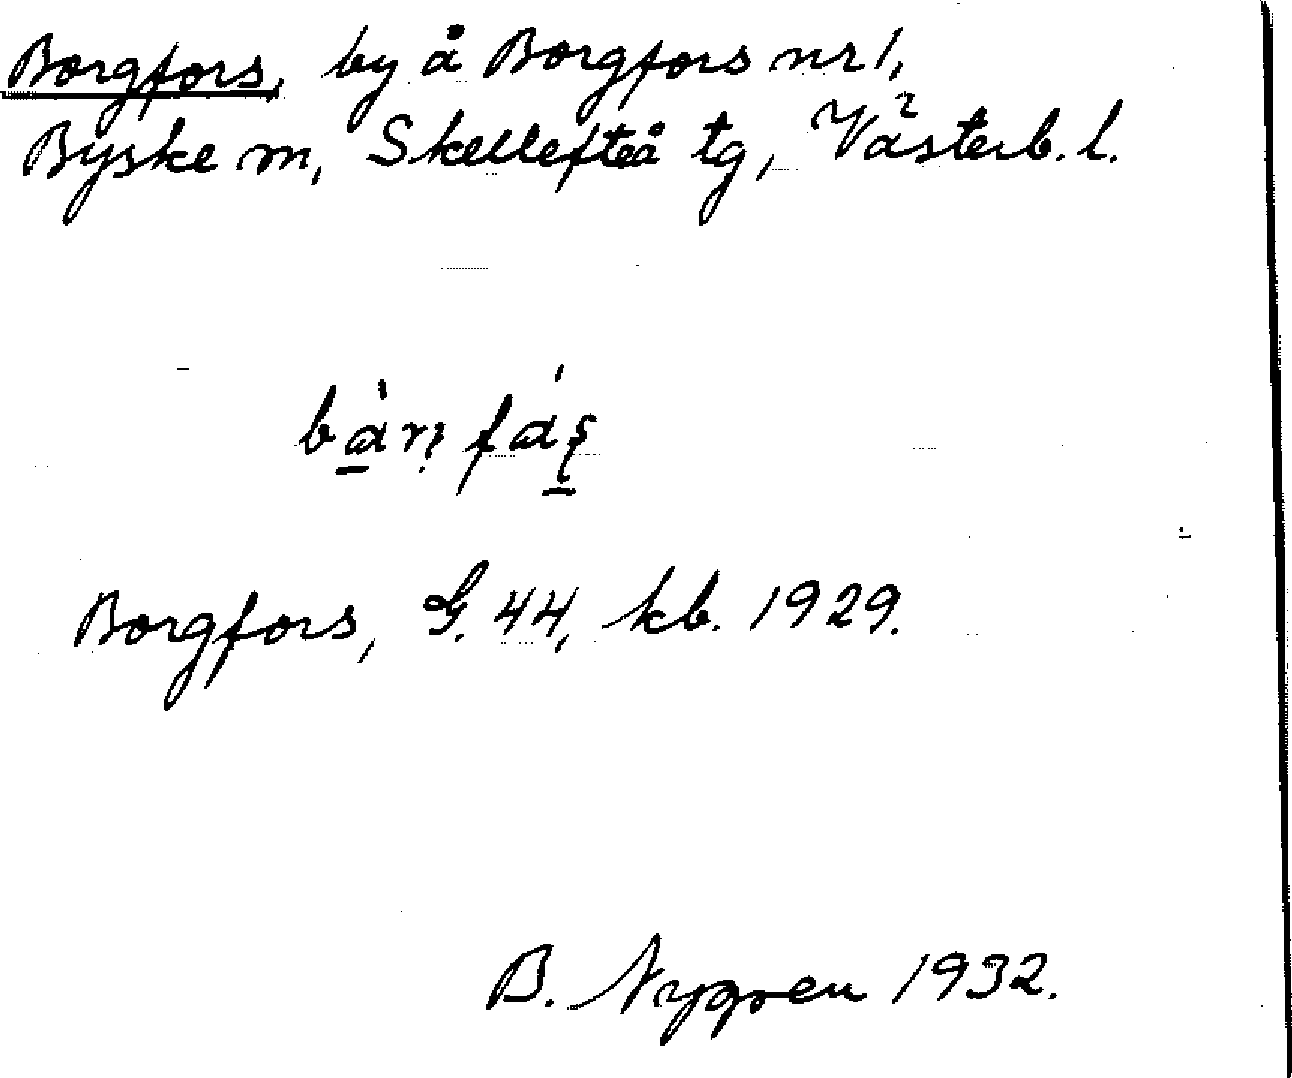 Borgfors, by å Borgfors nr 1,
Byske sn, Skellefteå tg, Västerb. l.
Borgfors, G. 44, kb. 1929.
B. Nygren 1932.